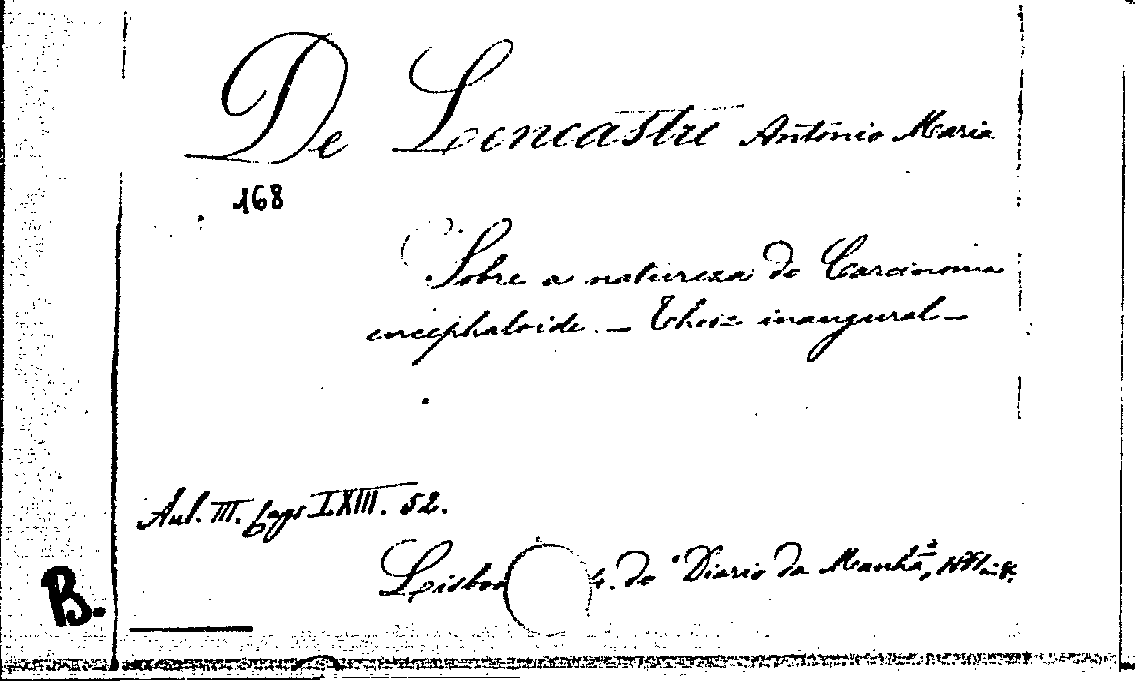 De Lencastre António Maria
168
Sobre a natureza do Carcinoma
encephaloide. — These inaugural —
Aul. III. Caps LXIII. 52.
Lisboa do Diario da Manhã,
B.